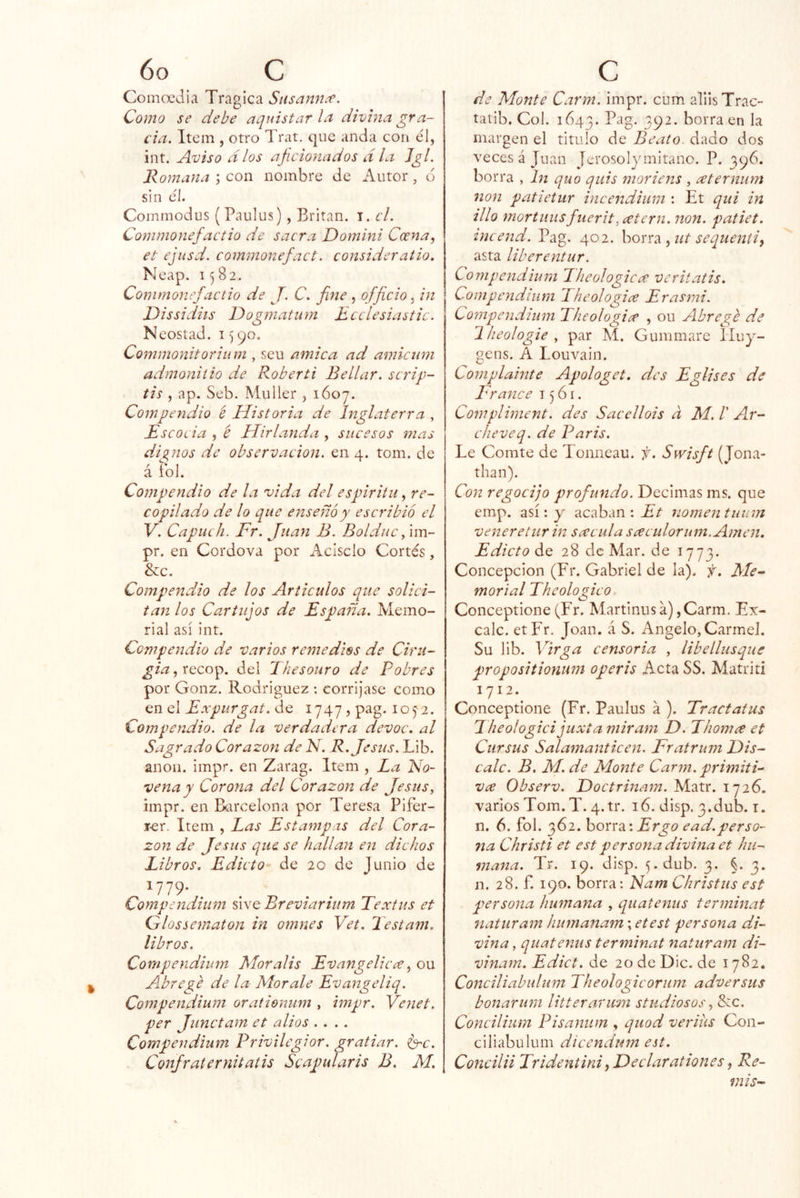 60 C
Comœdia Tragica Susannæ.
Como se debe aquistar la divina gra-
cia. Item, otro Trat. que anda con él,
int. Aviso á los aficionados á la Igl.
Romana; con nombre de Autor, ó
sin él.
Commodus (Paulus), Britan. 1. cl.
Commonefactio de sacra Domini Cœna,
et ejusd. commonefact. consideratio.
Neap. 1582.
Commonefactio de J. C. fine, officio, in
Dissidiis Dogmatum Ecclesiastic.
Neostad. 1590.
Commonitorium, seu amica ad amicum
admonitio de Roberti Bellar. scrip-
tis, ap. Seb. Muller, 1607.
Compendio é Historia de Inglaterra,
Escocia, é Hirlanda, sucesos mas
dignos de observacion. en 4. tom. de
á fol.
Compendio de la vida del espiritu, re-
copilado de lo que enseñó y escribió el
V. Capuch. Fr. Juan B. Bolduc, im-
pr. en Cordova por Acisclo Cortés,
&c.
Compendio de los Articulos que solici-
tan los Cartujos de España. Memo-
rial así int.
Compendio de varios remedios de Ciru-
gia, recop. del Thesouro de Pobres
por Gonz. Rodriguez: corrijase como
en el Expurgat. de 1747, pag. 1052.
Compendio. de la verdadera devoc. al
Sagrado Corazon de N. R. Jesus. Lib.
anon. impr. en Zarag. Item, La No-
vena y Corona del Corazon de Jesus,
impr. en Barcelona por Teresa Pifer-
rer. Item, Las Estampas del Cora-
zon de Jesus que se hallan en dichos
Libros. Edicto de 20 de Junio de
1779.
Compendium sive Breviarium Textus et
Glossematon in omnes Vet. Testam.
libros.
Compendium Moralis Evangelicæ, ou
Abregè de la Morale Evangeliq.
Compendium orationum, impr. Venet.
per Junctam et alios....
Compendium Privilegior. gratiar. &c.
Confraternitatis Scapularis B. M.
C
de Monte Carm. impr. cum aliis Trac-
tatib. Col. 1643. Pag. 392. borra en la
margen el titulo de Beato. dado dos
veces á Juan Jerosolymitano. P. 396.
borra, In quo quis moriens, æternum
non patietur incendium: Et qui in
illo mortuus fuerit, ætern. non. patiet.
incend. Pag. 402. borra, ut sequenti,
asta liberentur.
Compendium Theologicæ veritatis.
Compendium Theologiæ Erasmi.
Compendium Theologiæ, ou Abregè de
Theologie, par M. Gummare Huy-
gens. A Louvain.
Complainte Apologet. des Eglises de
France 1561.
Compliment. des Sacellois à M. l' Ar-
cheveq. de Paris.
Le Comte de Tonneau. ℣. Swisft (Jona-
than).
Con regocijo profundo. Decimas ms. que
emp. así: y acaban: Et nomen tuum
veneretur in sæcula sæculorum. Amen.
Edicto de 28 de Mar. de 1773.
Concepcion (Fr. Gabriel de la). ℣. Me-
morial Theologico.
Conceptione (Fr. Martinus à), Carm. Ex-
calc. et Fr. Joan. á S. Angelo, Carmel.
Su lib. Virga censoria, libellusque
propositionum operis Acta SS. Matriti
1712.
Conceptione (Fr. Paulus à). Tractatus
Theologici juxta miram D. Thomæ et
Cursus Salamanticen. Fratrum Dis-
calc. B. M. de Monte Carm. primiti-
væ Observ. Doctrinam. Matr. 1726.
varios Tom. T. 4. tr. 16. disp. 3. dub. 1.
n. 6. fol. 362. borra: Ergo ead. perso-
na Christi et est persona divina et hu-
mana. Tr. 19. disp. 5. dub. 3. §. 3.
n. 28. f. 190. borra: Nam Christus est
persona humana, quatenus terminat
naturam humanam; et est persona di-
vina, quatenus terminat naturam di-
vinam. Edict. de 20 de Dic. de 1782.
Conciliabulum Theologicorum adversus
bonarum litterarum studiosos, &c.
Concilium Pisanum, quod veriùs Con-
ciliabulum dicendum est.
Concilii Tridentini, Declarationes, Re-
mis-